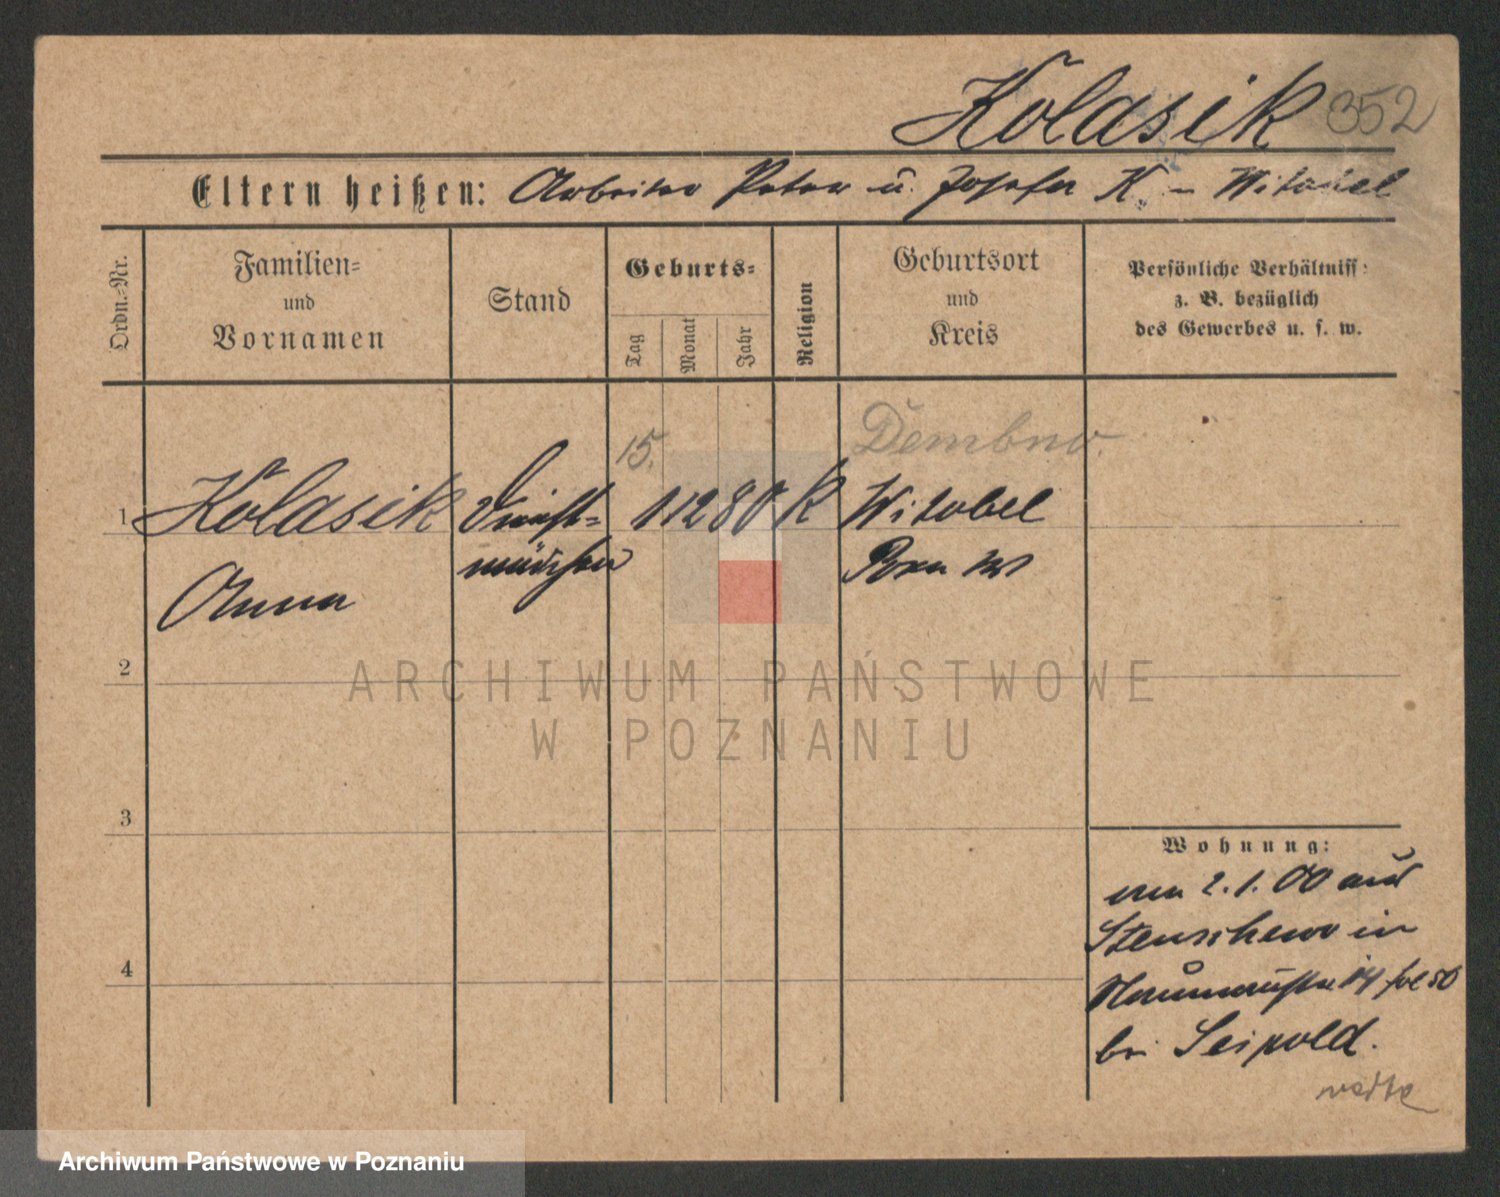 Kolasik 352
Eltern heißen: Arbeiter Peter u. Josefa K. – Witobel
Ordn.-Nr.
Familien-
und
Vornamen
Stand
Geburts-
Tag
Monat
Jahr
Religion
Geburtsort
und
Kreis
Persönliche Verhältniss:
z. B. bezüglich
des Gewerbes u. s. w.
15. Dembno.
1 Kolasik Dienst- 1 12 80 K Witobel
mädchen Posen W
Anna
2
ARCHIWUM PAŃSTWOWE
W POZNANIU
3
Wohnung:
2.1.00 aus
Stenschewo in
Naumannstr 14
4
bei Seipold.
Archiwum Państwowe w Poznaniu